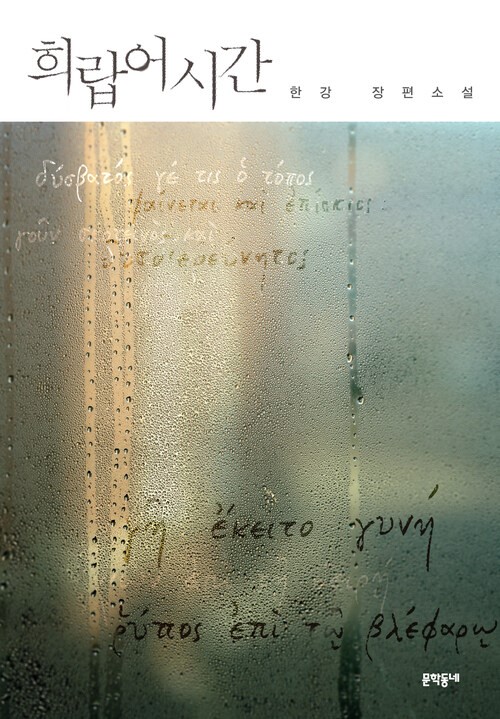 희랍어 시간
한강 장편소설
δύσβατός γέ τις ὁ τόπος
φαίνεται καὶ ἐπίσκιος
γοῦν σκοτεινὸς καὶ
δυσδιερεύνητος
γῆ ἔκειτο γυνή
ῥύπος ἐπὶ τῷ βλεφάρῳ
문학동네